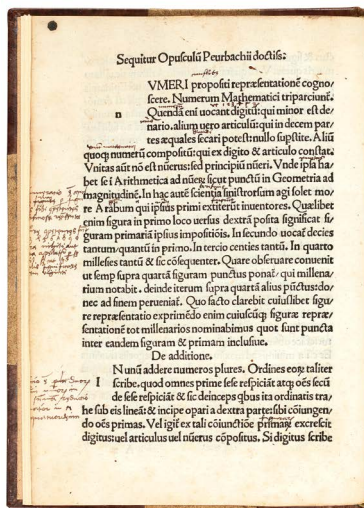 Sequitur Opusculũ Peurbachii doctiss:
VMERI propositi repræsentationẽ cogno/
scere. Numerum Mathematici tripartiunt.
n
Quendã eni uocant digitũ: qui minor est de/
nario. alium uero articulũ: qui in decem par/
tes æquales secari potest: nullo supstite. Aliũ
quoq; numerũ compositũ: qui ex digito & articulo constat.
Vnitas aut nõ est nũerus: sed principiũ nũeri. Vnde ipsa ha
bet se ĩ Arithmetica ad nũerũ: sicut punctũ in Geometria ad
magnitudinẽ. In hac autẽ scientia sinistrorsum agi solet mo/
re Arabum qui ipsius primi extiterũt inuentores. Quælibet
enim figura in primo loco uersus dextrã posita significat fi/
guram primaria ipsius impositiõis. In secundo uocat decies
tantum: quantũ in primo. In tercio centies tantũ. In quarto
milleses tantũ & sic cõsequenter. Quare obseruare conuenit
ut semp supra quartã figuram punctus ponat: qui millena/
rium notabit. deinde iterum supra quartã alius pũctus: do/
nec ad finem perueniat. Quo facto clarebit cuiuslibet figu/
re repræsentatio exprimẽdo enim cuiuscũq; figuræ repræ/
sentationẽ tot millenarios nominabimus quot sunt puncta
inter eandem figuram & primam inclusiue.
De additione.
N unũ addere numeros plures. Ordines eorum taliter
I
scribe. quod omnes prime sese respiciãt atq; oẽs secũ
de sese respiciãt & sic deinceps qbus ita ordinatis tra/
he sub eis lineã: & incipe opari a dextra parte: sibi cõiungen/
do oẽs primas. Vel igit ex tali cõiunctiõe primarum excrescit
digitus: uel articulus uel nũerus cõpositus. Si digitus scribe